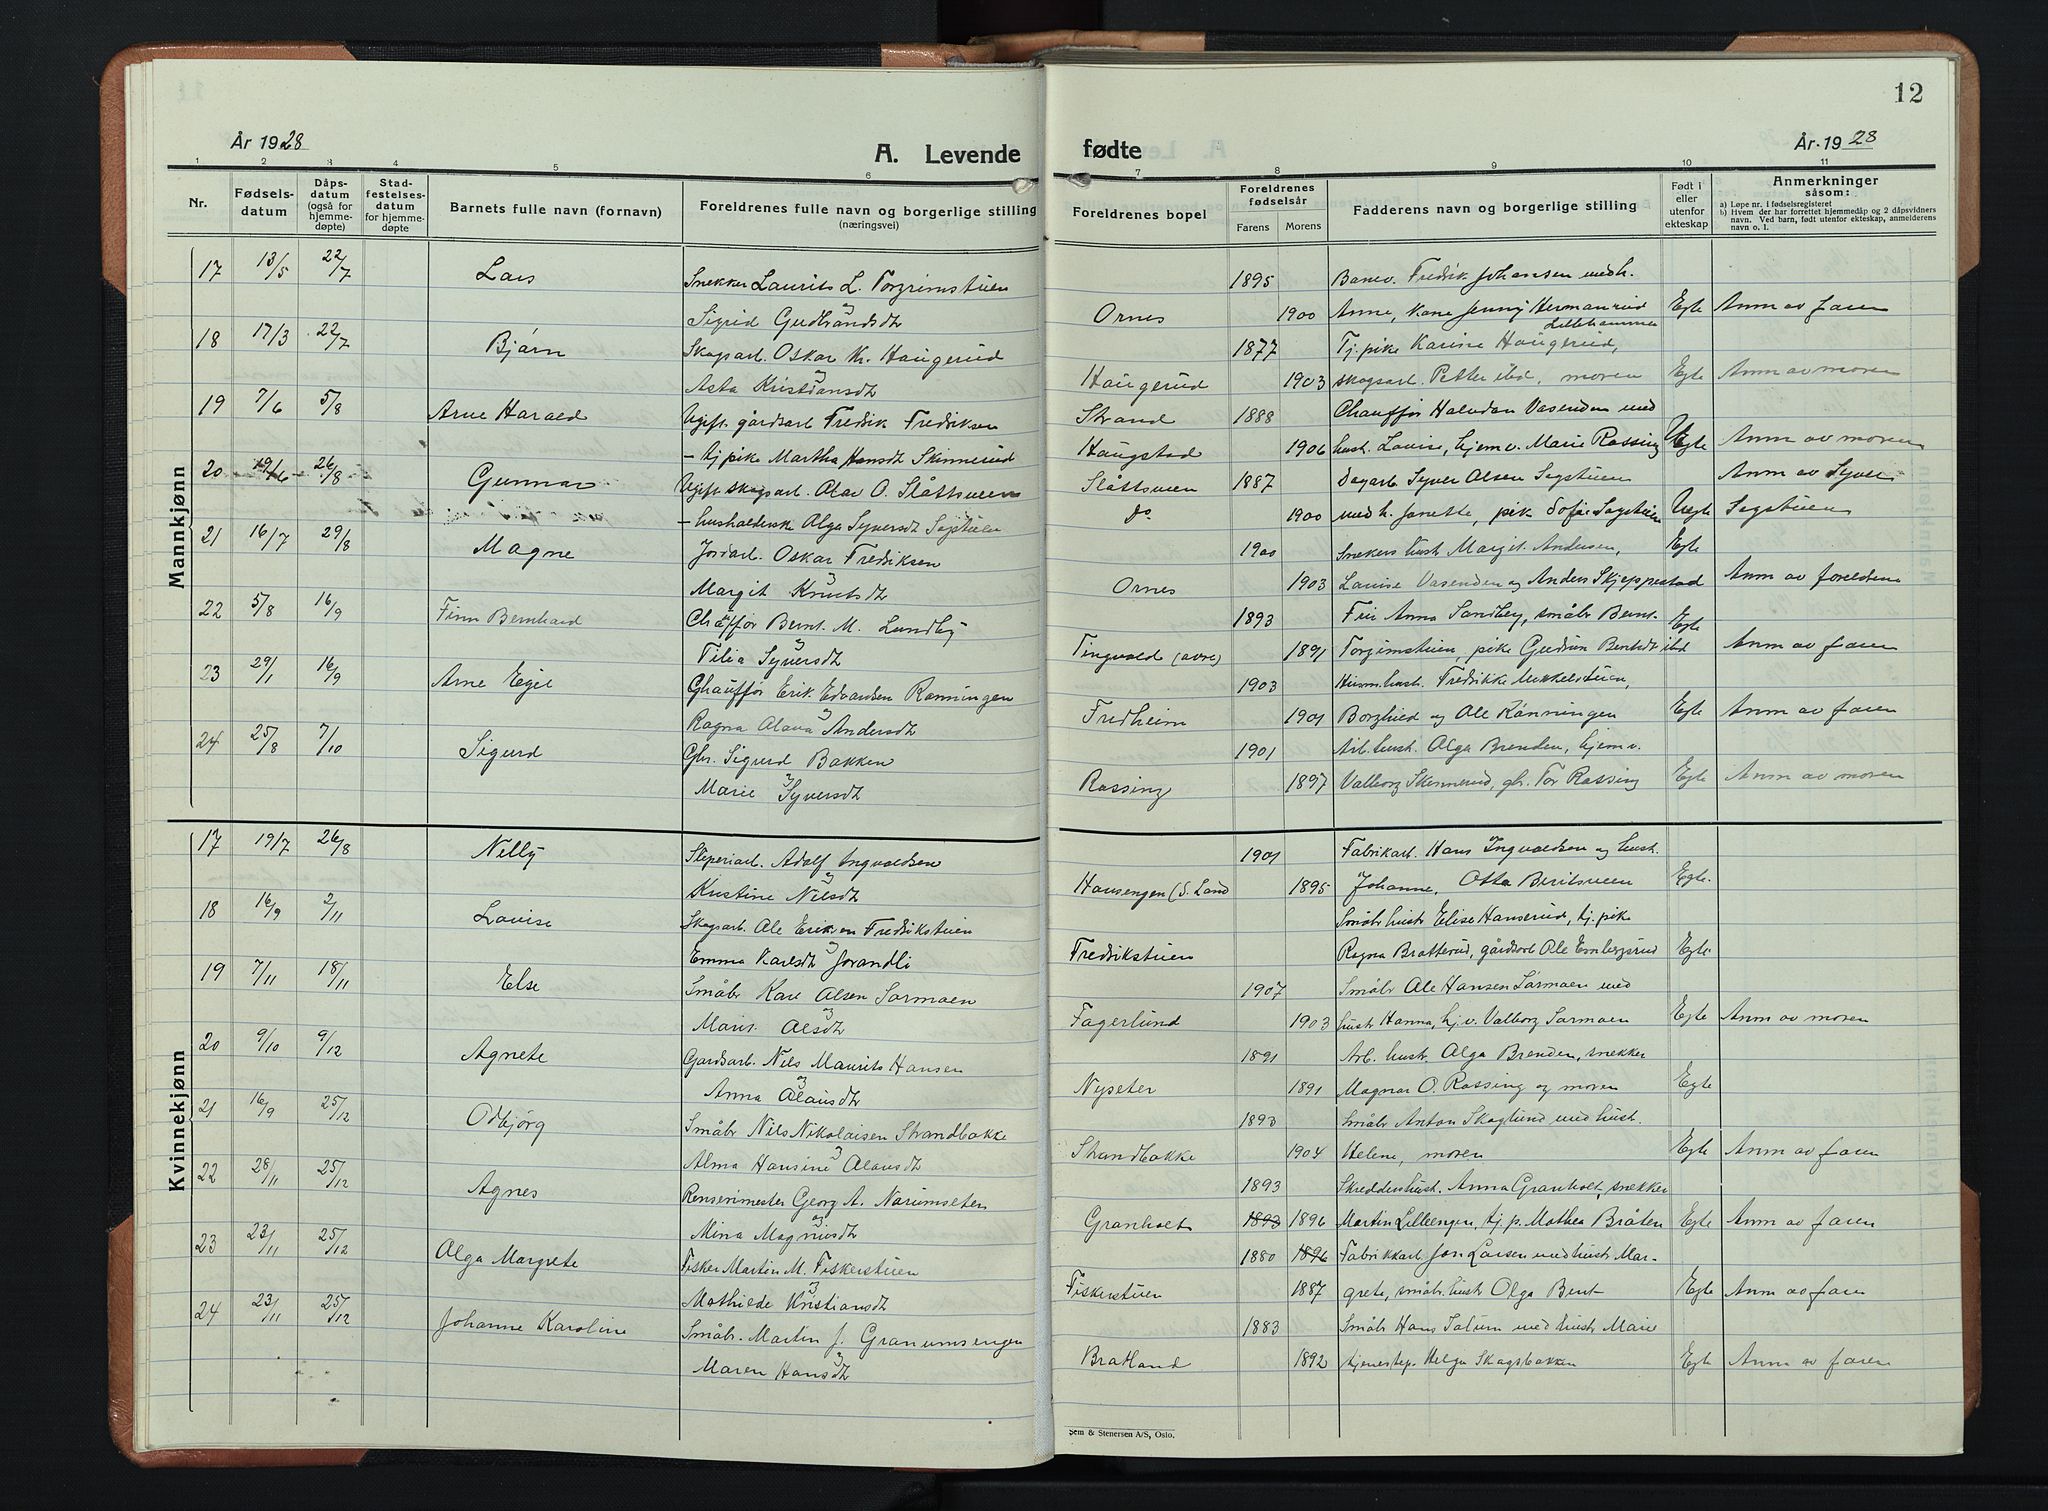 12
År 1928
A. Levende
1 2 3 4 5 6
Nr.
Fødsels-
datum
Dåps-
datum
(også for
hjemme-
døpte)
Stad-
festelses-
datum
for hjemme-
døpte
Barnets fulle navn (fornavn)
Foreldrenes fulle navn og borgerlige stilling
(næringsvei)
Mannkjønn
17 13/5 22/7 Lars Snekker Laurits L. Torgrimstuen
og
Sigrid Gudbrandsdt
18 17/3 22/7 Bjørn Skogsarb. Oskar Kr. Haugerud
og
Asta Kristiansdt
19 7/6 5/8 Arne Harald Ugift gårdsarb Fredrik Fredriksen
- tj pike Martha Hansdt Skinnerud
20 19/6 26/8 Gunnar Ugift skogsarb. Olav O. Slåttsveen
- husholderske Olga Syversdt Sogstuen
21 16/7 29/8 Magne Jordarb. Oskar Fredriksen
og
Margit Knutsdt
22 5/8 16/9 Finn Bernhard Chauffør Bernt M. Lundby
og
Tilia Syversdt
23 29/1 16/9 Arne Egil Chauffør Erik Edvardsen Rønningen
og
Ragna Olava Andersdt
24 25/8 7/10 Sigurd Gbr. Sigurd Bakken
og
Marie Syversdt
Kvinnekjønn
17 19/7 26/8 Nelly Sliperiarb. Adolf Ingvaldsen
og
Kristine Nilsdt
18 16/9 2/11 Lovise Skogsarb. Ole Eriksen Fredrikstuen
og
Emma Karlsdt Jorandli
19 7/11 18/11 Else Småbr Karl Olsen Sørmoen
og
Marie Olsdt
20 9/10 9/12 Agnete Gårdsarb. Nils Maurits Hansen
og
Anna Olausdt
21 16/9 25/12 Odbjørg Småbr Nils Nikolaisen Strandbakke
og
Alma Hansine Olausdt
22 28/11 25/12 Agnes Renserimester Georg A. Narumseter
og
Mina Magnusdt
23 23/11 25/12 Olga Margrete Fisker Martin M. Fiskerstuen
og
Mathilde Kristiansdt
24 23/11 25/12 Johanne Karoline Småbr. Martin J. Granumsengen
og
Maren Hansdt
fødte
År 1928
7 8 9 10 11
Foreldrenes bopel
Foreldrenes
fødselsår
Farens Morens
Fadderens navn og borgerlige stilling
Født i
eller
utenfor
ekteskap
Anmerkninger
såsom:
a) Løpe nr. i fødselsregisteret
b) Hvem der har forrettet hjemmedåp og 2 dåpsvidners
navn. Ved barn, født utenfor ekteskap, anmelderens
navn o. l.
1895 Banev. Fredrik Johansen med h.
Ornes 1900 Anne, kone Jenny Hermanrud Egte Anm av faren
Lillehammer
1877 Tj. pike Karine Haugerud,
Haugerud 1903 skogsarb. Petter ibd, moren Egte Anm av moren
Strand 1888 Chauffør Halvdan Vasenden med
Haugstad 1906 hust. Lovise, hjemv. Marie Røssing Uegte Anm av moren
Slåttsveen 1887 Dagarb Syver Olsen Sogstuen Anm av Syver
do 1900 med h. Janette, pik Sofie Sogstuen Uegte Sogstuen
1900 Snekers hust Margit Andersen, Egte
Ornes 1903 Lovise Vasenden og Anders Skjeppestad Anm av foreldrene
1893 Fru Anna Sandberg, småbr Bernt Egte
Tingvold (øvre) 1891 Torgrimstuen, pike Gudrun Berntsdt ibd Anm av faren
1903 Husm.hust. Fredrikke Mikkelstuen,
Fredheim 1901 Borghild og Ole Rønningen Egte Anm av faren
1901 Arb. hust. Olga Brenden, hjemv.
Røssing 1897 Valborg Skinnerud, gbr. Tor Røssing Egte Anm av moren
1901 Fabrikarb. Hans Ingvaldsen og hust.
Hansengen (S. Land 1895 Johanne, Otto Beritsveen Egte.
Småbr hust Elise Hanserud, tj. pike
Fredrikstuen Ragna Bratterud, gårdsarb Ole Embergsrud Egte
1907 Småbr Ole Hansen Sørmoen med
Fagerlund 1903 hust Hanna, hj.v. Valborg Sørmoen Egte Anm av moren
1891 Arb. hustr. Olga Brenden, snekker
Nyseter 1891 Magnar O. Røssing og moren Egte
1893 Småbr Anton Skoglund med hust.
Strandbakke 1904 Helene, moren Egte Anm av faren
1893 Skredderhust. Anna Granholt, snekker
Granholt 1893 1896 Martin Lilleengen, tj. p. Mathea Bråten Egte Anm av faren
1880 1896 Fabrikkarb. Jon Larsen med hust Mar-
Fiskerstuen 1887 grete, småbr. hust Olga Bent- Egte Anm av faren
1883 Småbr Hans Solum med hust Marie
Bratland 1892 tjenestep. Helga Skogsbakken Egte Anm av faren
Sem & Stenersen A/S, Oslo.